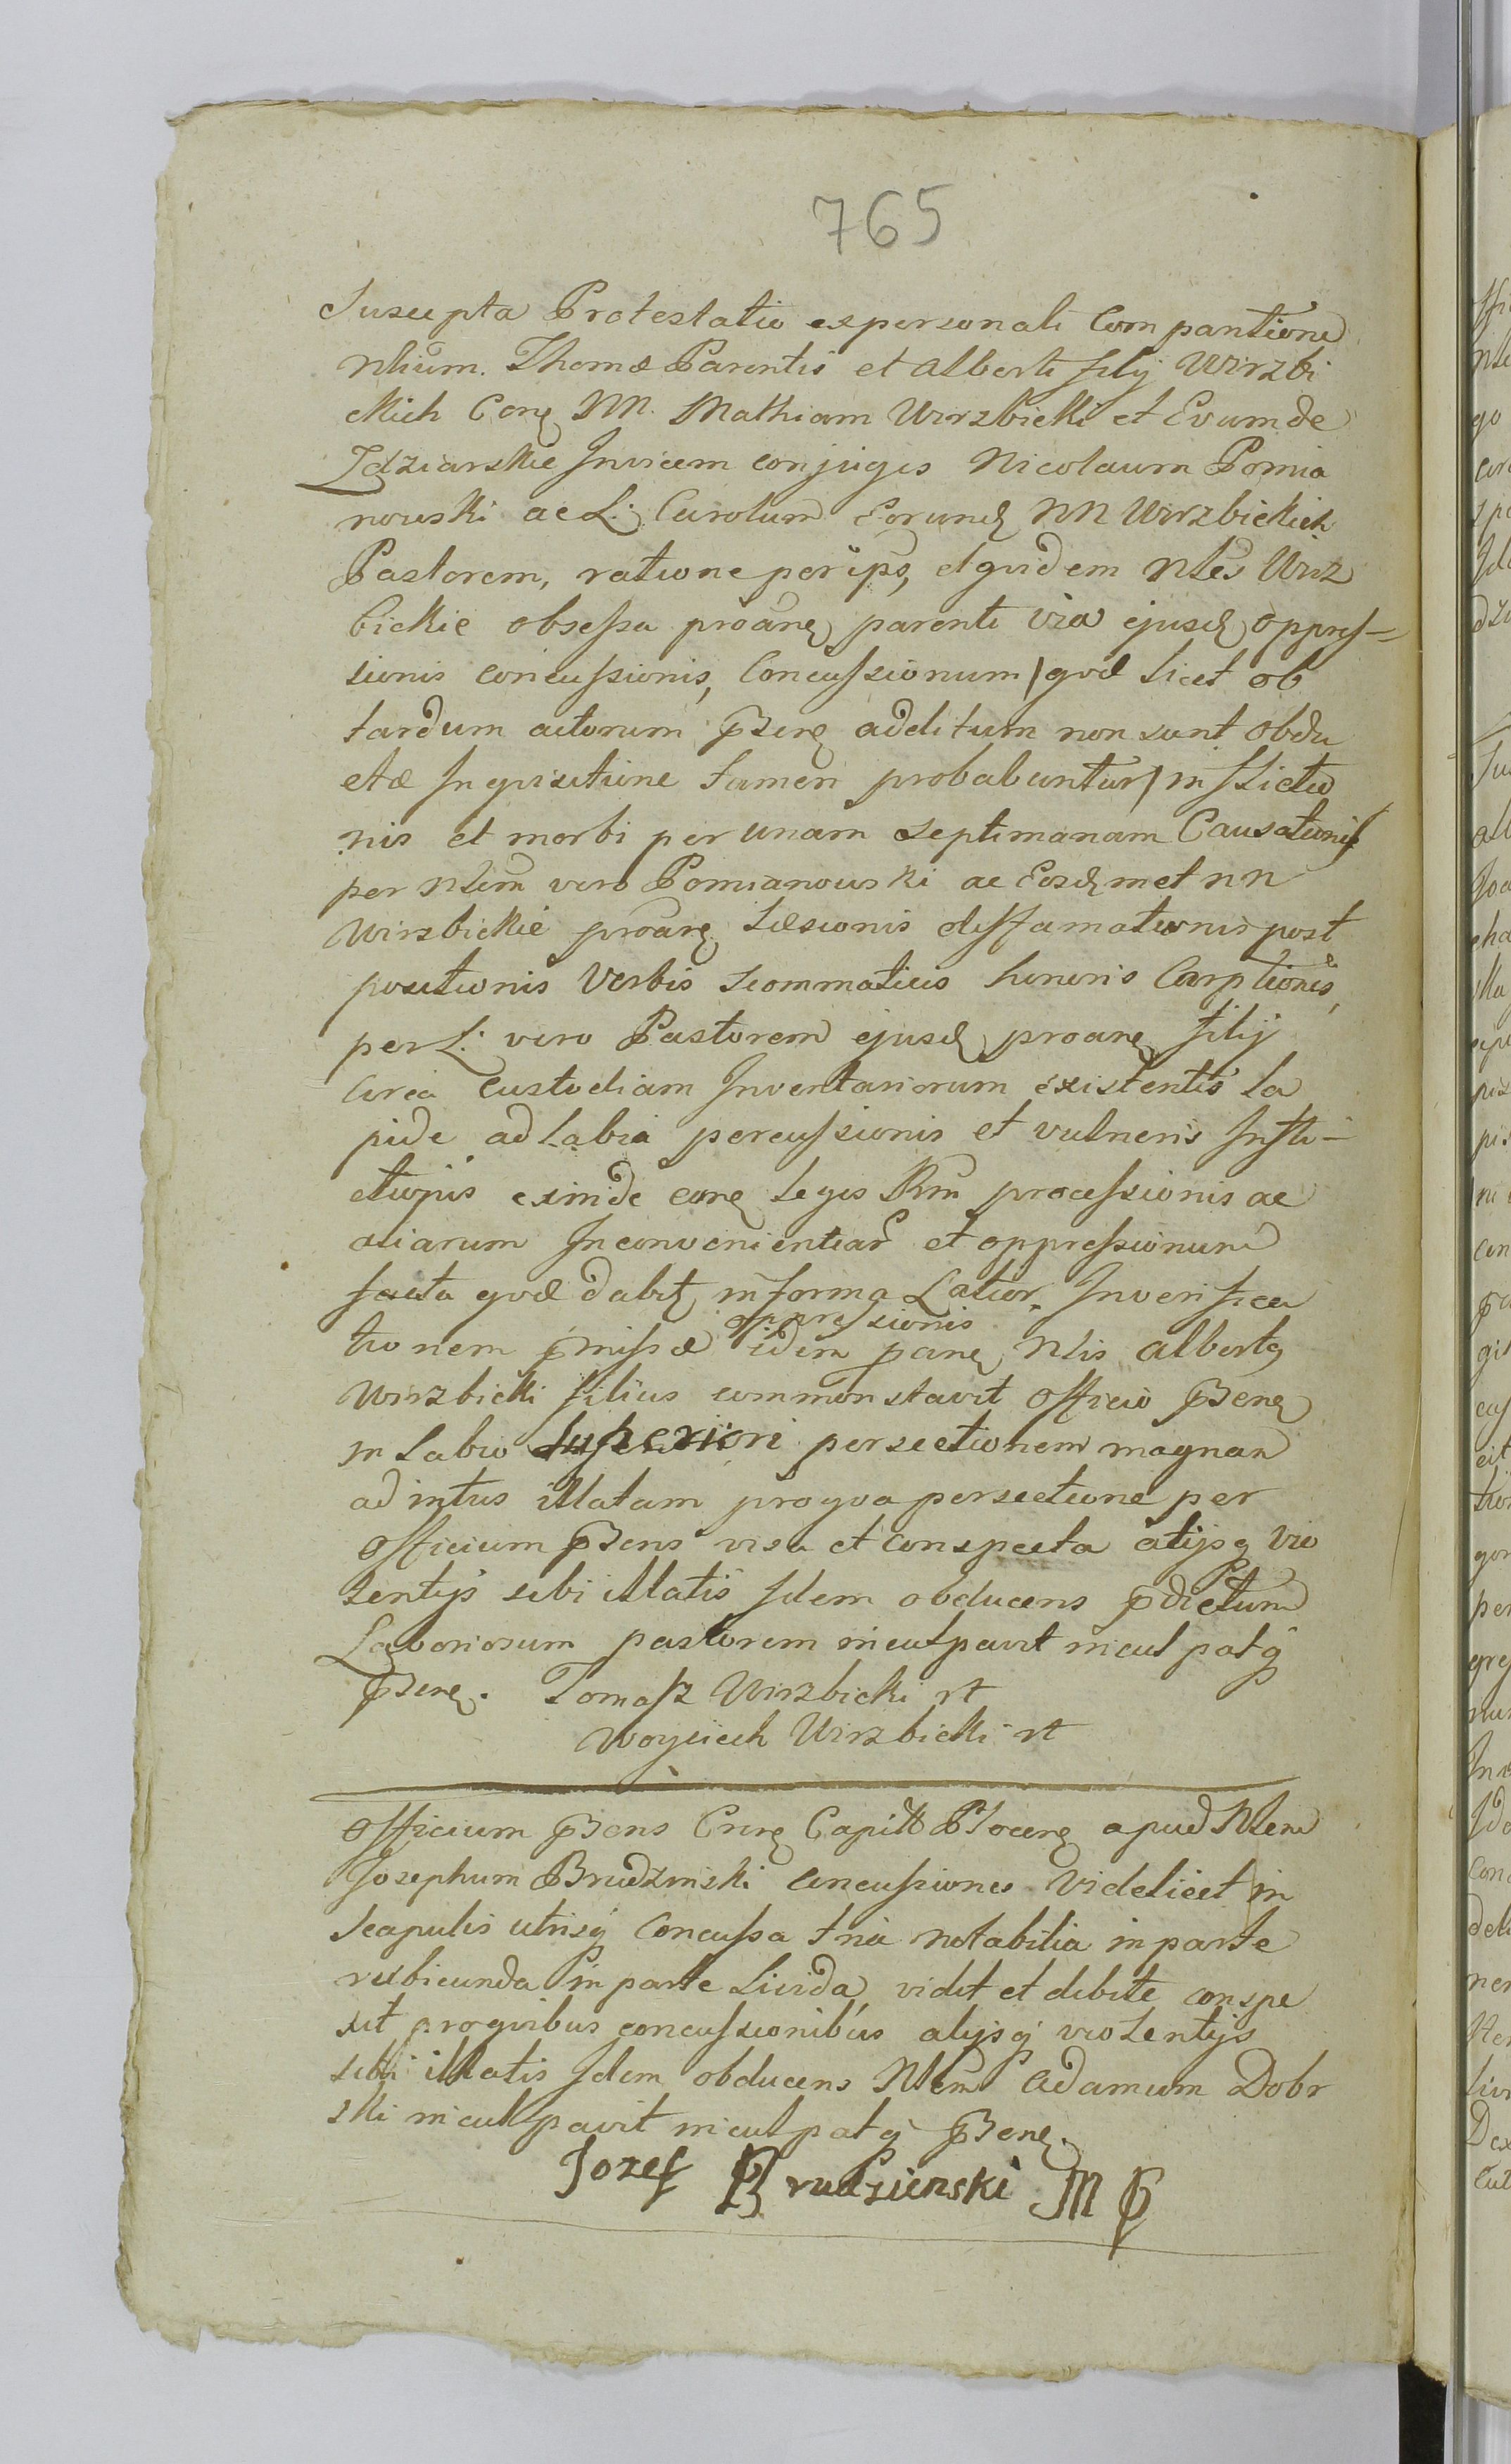 765
Suscepta Protestatio ex personali Compar̃tione
Nlium. Thomæ Parentis et Alberti filij Wirzbi
ckich Con̄ę NN. Mathiam Wirzbicki et Evam de
Zdziarskie Invicem conjuges Nicolaum Pomia
nowski ac L. Carolum Eorundę NN Wirzbickich
Pastorem, ratione per ips̃, et quidem Nles Wirz
bickie obsessa proãnę parenti via ejusdę oppres-
sionis concussionis, Concussionum /quæ licet ob
tardum actorum pñsenę additum non sunt obdu
ctæ Inquisitione tamen probabuntur/ inflictio
nis et morbi per unam septimanam Causationis
per Nlem vero Pomianowski ac Eosdęmet NN
Wirzbickie proãnę Læsionis diffamationis post
positionis Verbis scommaticis honoris Carptionis,
per L. vero Pastorem ejusdę proãnę filij
Circa custodiam Inventariorum existentis la
pide ad labia percussionis et vulneris Infli-
ctionis exinde con̄ę legis Rm processionis ac
aliarum Inconvenientiar̃ et oppressionum
facta quæ dabitę in forma Latior. In verifica
oppressionis
tionem pmissæ idem pãnę Nlis Albertę
Wirzbicki filius commonstravit officio pñsenę
in labio Superiori persectionem magnam
ad intus illatam pro qua persectione per
officium pñsens visa et conspecta alijsq̃ vio
lentijs sibi illatis Idem obducens pdictum
Laboriosum pastorem inculpavit inculpatq̃
pñsenę. Tomasz Wirzbicki rt
Woyciech Wirzbicki rt
Officium pñsens Crrę Capitt Plocenę apud Nlem
Josephum Brudzinski concussiones Videlicet in
scapulis utrisq̃ Concussa tria notabilia in parte
rubicunda in parte livida, vidit et debite conspe
xit pro quibus concussionibus alijsq̃ violentijs
sibi illatis Idem obducens Nlem Adamum Dobr
ski inculpavit inculpatq̃ pñsenę.
Jozef Brudzienski MP